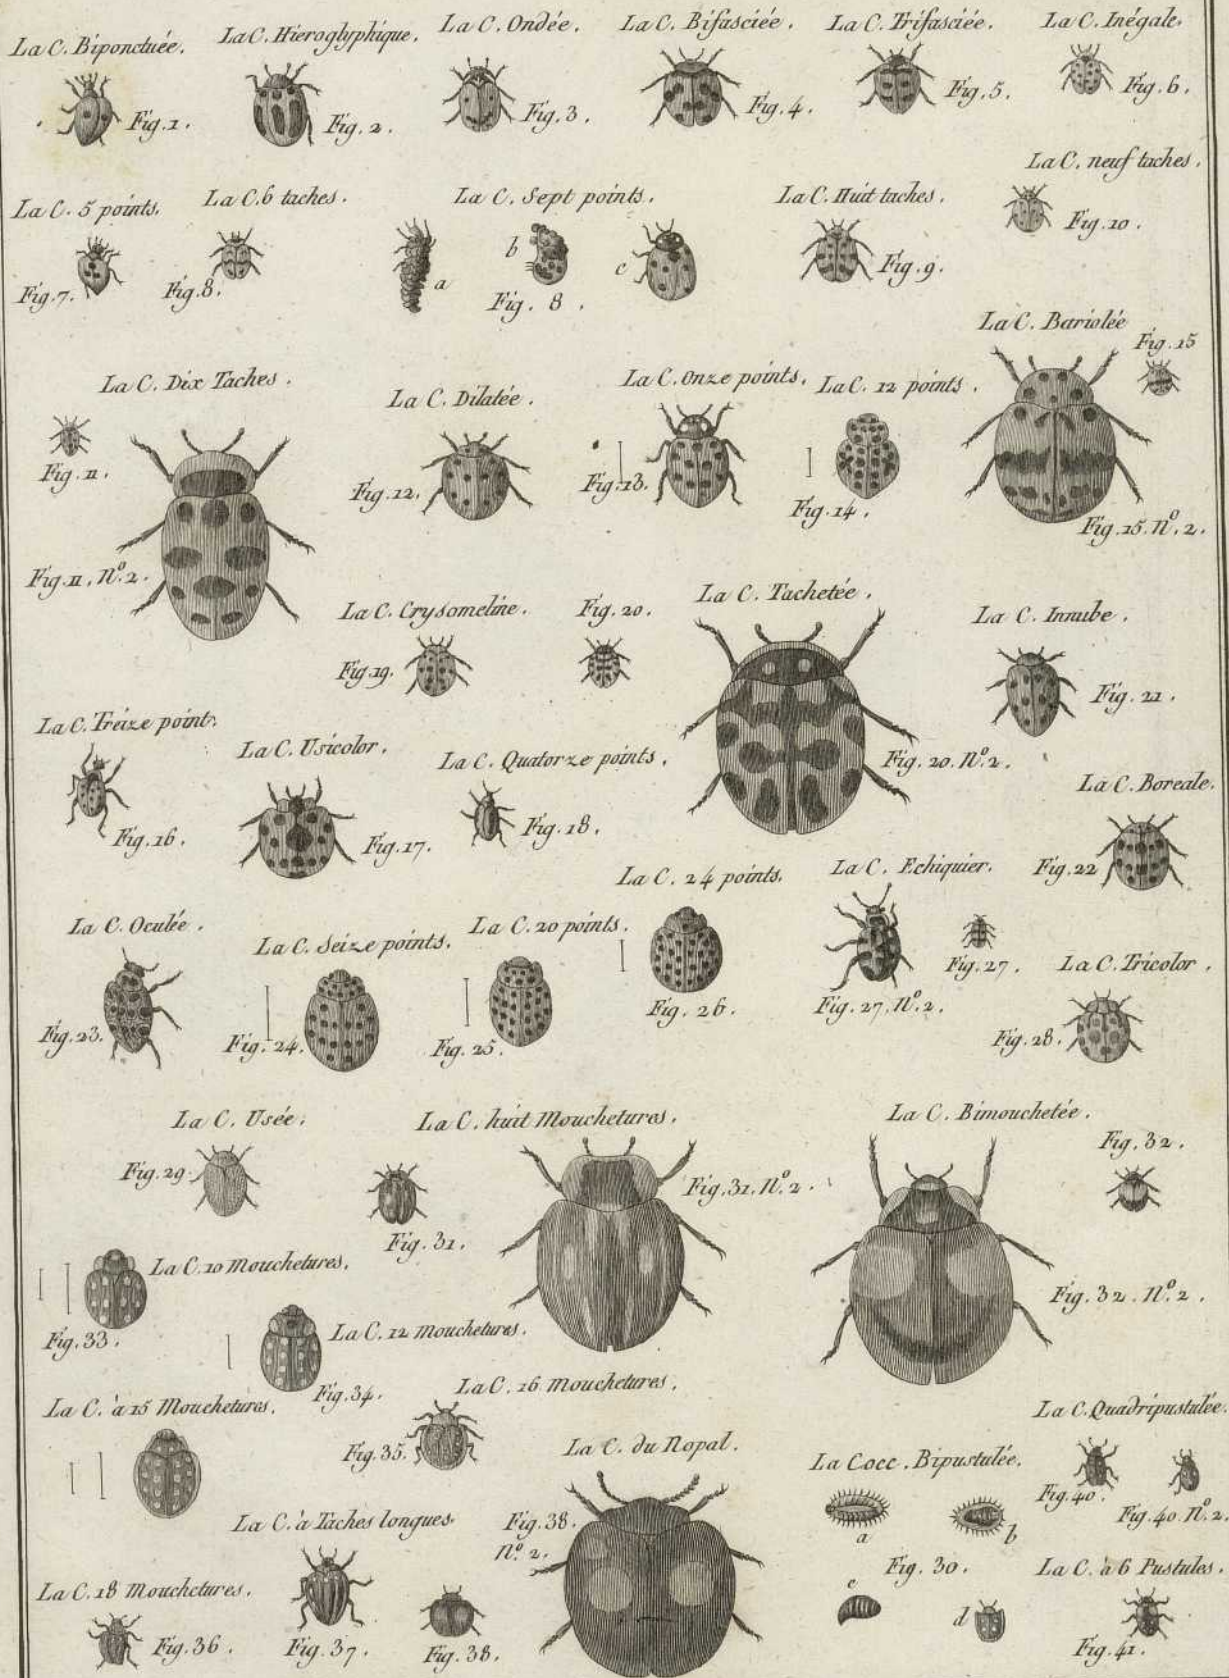 La C. Biponctuée.
Fig. 1.
La C. Hieroglyphique.
Fig. 2.
La C. Ondée.
Fig. 3.
La C. Bifasciée.
Fig. 4.
La C. Trifasciée.
Fig. 5.
La C. Inégale.
Fig. 6.
La C. 5 points.
Fig. 7.
La C. 6 taches.
Fig. 8.
La C. Sept points.
a
b
c
Fig. 8.
La C. Huit taches.
Fig. 9.
La C. neuf taches.
Fig. 10.
La C. Dix Taches.
Fig. 11.
Fig. 11. No. 2.
La C. Dilatée.
Fig. 12.
La C. Onze points.
Fig. 13.
La C. 12 points.
Fig. 14.
La C. Bariolée
Fig. 15
Fig. 15. No. 2.
La C. Crysomeline.
Fig. 19.
Fig. 20.
La C. Tachetée.
Fig. 20. No. 2.
La C. Innube.
Fig. 21.
La C. Treize points.
Fig. 16.
La C. Usicolor.
Fig. 17.
La C. Quatorze points.
Fig. 18.
La C. Boreale.
Fig. 22
La C. Oculée.
Fig. 23.
La C. Seize points.
Fig. 24.
La C. 20 points.
Fig. 25.
La C. 24 points.
Fig. 26.
La C. Echiquier.
Fig. 27. No. 2.
Fig. 27.
La C. Tricolor.
Fig. 28.
La C. Usée.
Fig. 29.
Fig. 31.
La C. huit Mouchetures.
Fig. 31. No. 2.
La C. Bimouchetée.
Fig. 32.
Fig. 32. No. 2.
La C. 10 Mouchetures.
Fig. 33.
La C. 12 mouchetures.
Fig. 34.
La C. à 15 Mouchetures.
La C. 16 mouchetures.
Fig. 35.
La C. du Nopal.
Fig. 38.
No. 2.
La Cocc. Bipustulée.
a
b
Fig. 30.
c
d
La C. Quadripustulée.
Fig. 40.
Fig. 40. No. 2.
La C. 18 Mouchetures.
Fig. 36.
La C. à Taches longues.
Fig. 37.
Fig. 38.
La C. à 6 Pustules.
Fig. 41.